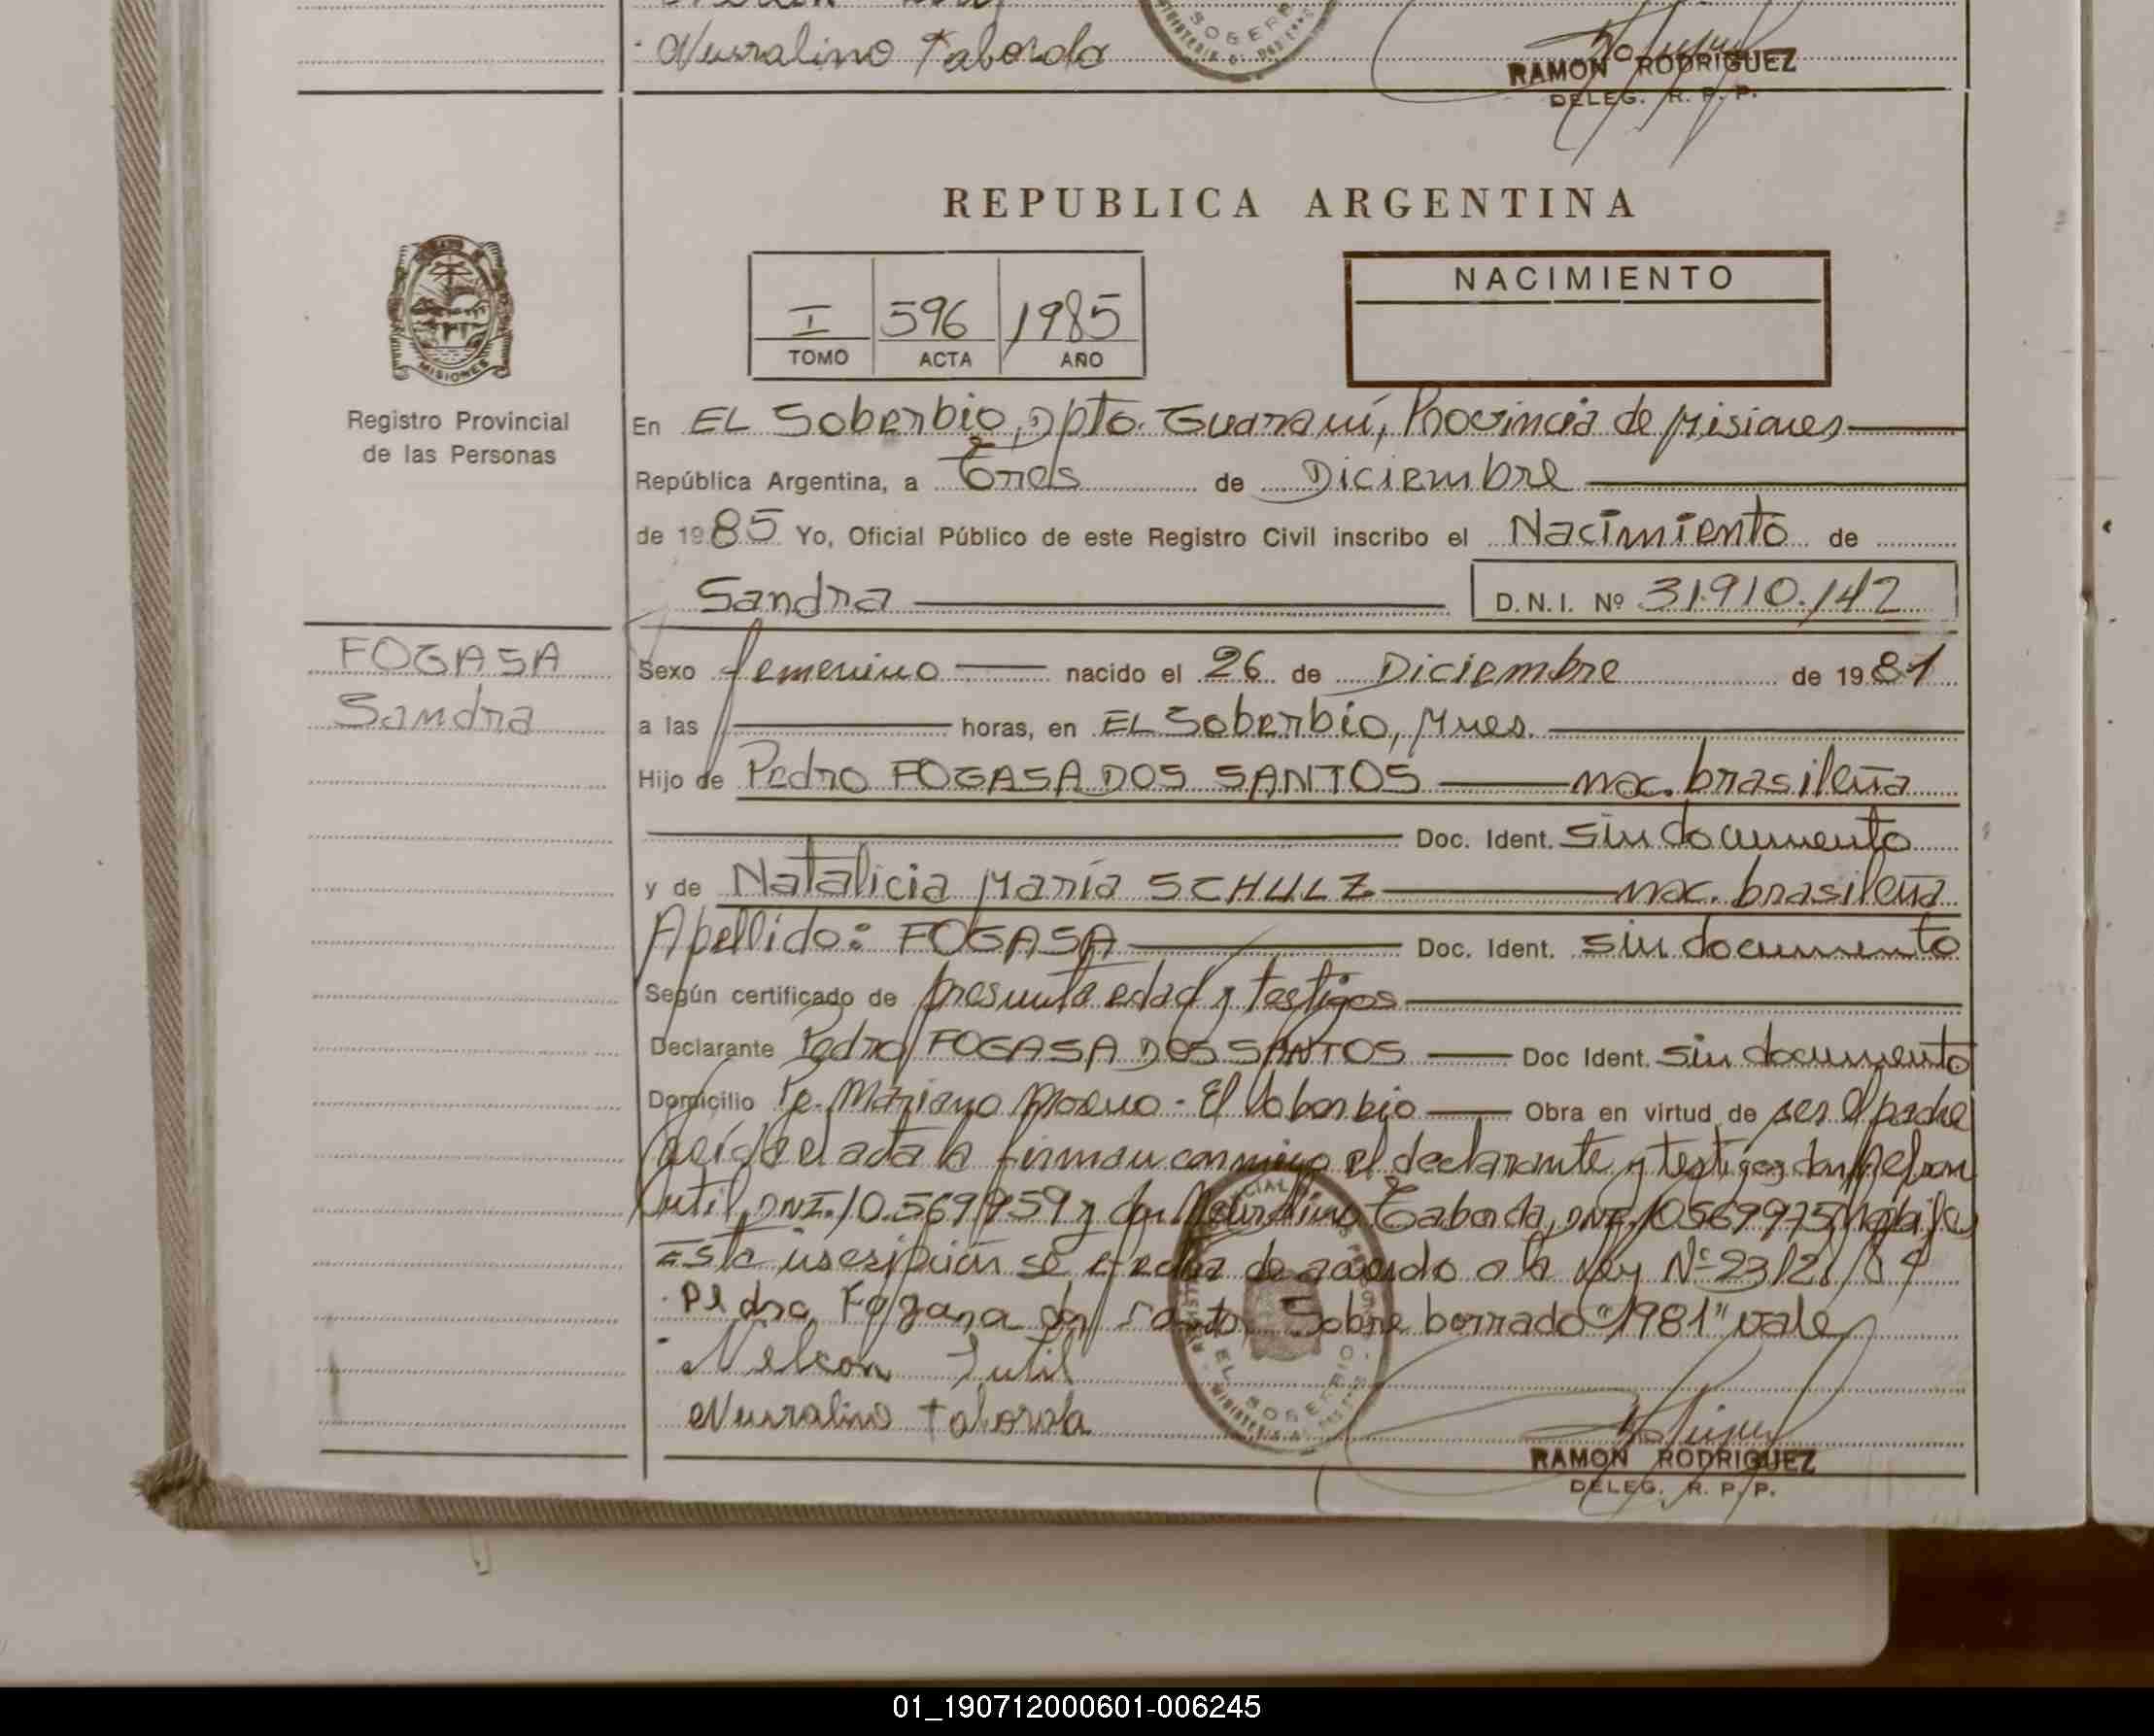 Nuvalino Taborda
RAMON RODRIGUEZ
DELEG. R. P. P.
REPUBLICA ARGENTINA
I 596 1985
TOMO ACTA AÑO
NACIMIENTO
MISIONES
Registro Provincial
de las Personas
En EL Soberbio, Dpto. Guaraní, Provincia de Misiones
República Argentina, a Tres de Diciembre
de 1985 Yo, Oficial Público de este Registro Civil inscribo el Nacimiento de
Sandra D.N.I. Nº 31.910.142
FOGASA
Sandra
Sexo femenino nacido el 26 de Diciembre de 1981
a las horas, en EL Soberbio, Mnes.
Hijo de Pedro FOGASA DOS SANTOS nac. brasileña
Doc. Ident. sin documento
y de Natalicia María SCHULZ nac. brasileña
Apellido: FOGASA Doc. Ident. sin documento
Según certificado de presunta edad y testigos
Declarante Pedro FOGASA DOS SANTOS Doc Ident. sin documento
Domicilio Pje. Mariano Moreno - El Soberbio Obra en virtud de ser el padre
Leída el acta la firman conmigo el declarante y testigos don Nelson
Sutil, DNI. 10.569.959 y don Taborda, DNI. 10569975
Esta inscripción se efectúa de acuerdo a la Ley Nº 23128/84
Pedro Fogasa dos Santos Sobre borrado "1981" vale
Nelson Sutil
Nuvalino Taborda
EL SOBERBIO
RAMON RODRIGUEZ
DELEG. R. P. P.
01_190712000601-006245